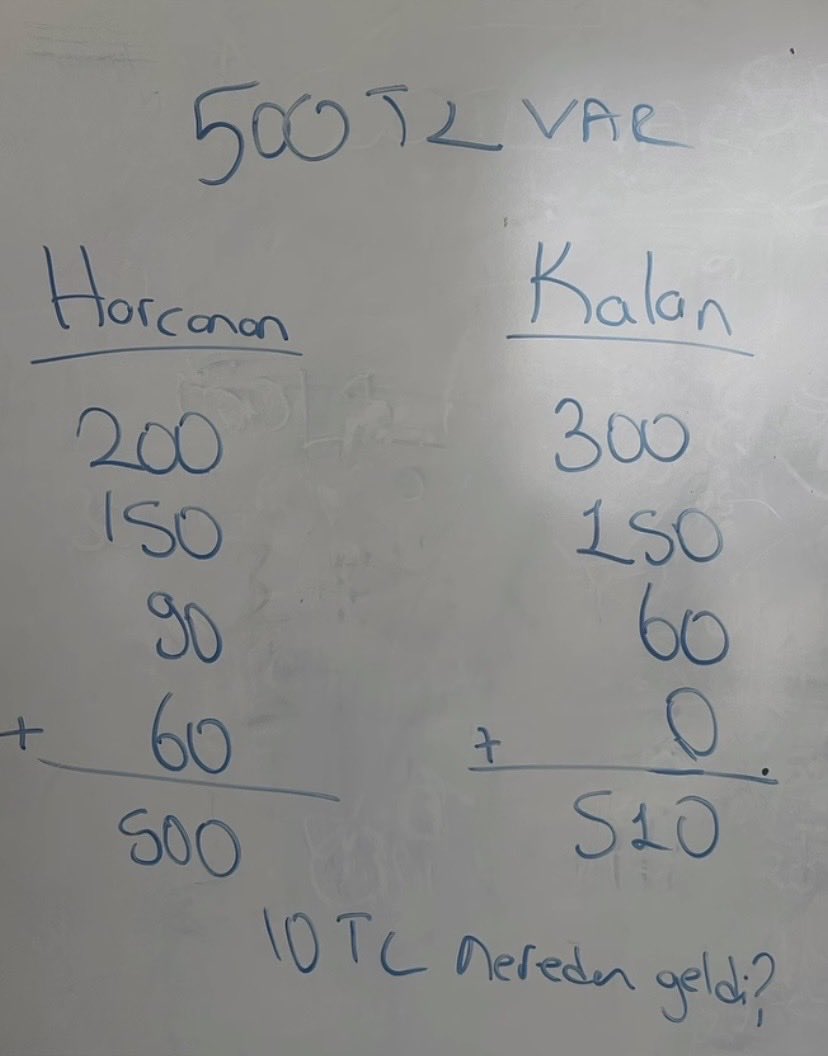 500 TL VAR
Harcanan Kalan
200 300
150 150
90 60
+ 60 + 0
500 510
10 TL nereden geldi?